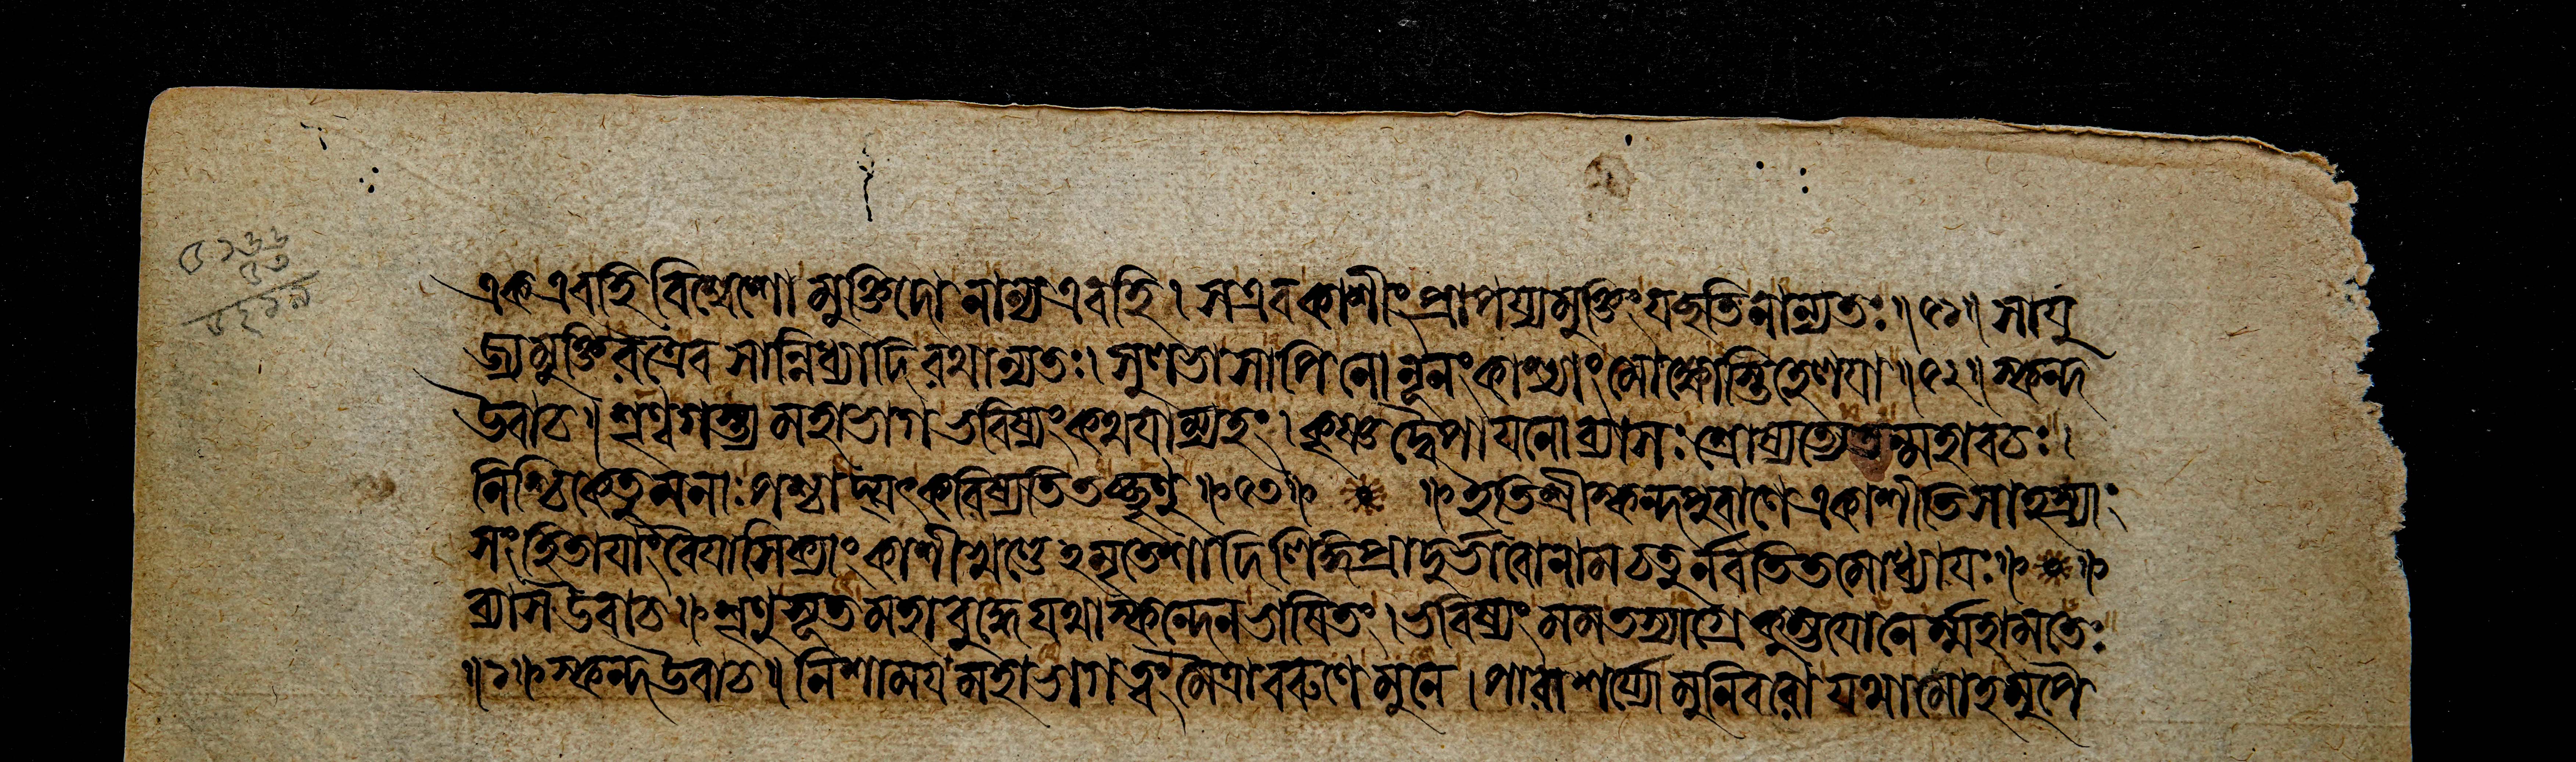 ৫১৬৬
৫৩
৫২১৯
একএবহি বিশ্বেশো মুক্তিদো নান্যএবহি । সএবকাশীংপ্রাপয্যমুক্তিংযছতিনান্যতঃ ॥ ৫১ ॥ সাযু
জ্যমুক্তিরত্রৈব সান্নিধ্যাদিরথান্যতঃ। সুলভাসাপিনোনূনংকাশ্যাংমোক্ষোস্তিহেলযা ॥ ৫২ ॥ স্কন্দ
উবাচ ॥ শৃণ্বগস্ত্য মহাভাগ ভবিষ্যংকথযাম্যহং । কৃষ্ণদ্বৈপাযনোব্যাসঃ শ্রোষ্যত্যেতন্মহাবচঃ ।
নিশ্চিকেতুমনাঃপশ্চাদ্যৎকরিষ্যতিতচ্ছৃণু ॥ ৫৩ ॥ ॥ ইতিশ্রীস্কন্দপুরাণেএকাশীতিসাহস্র্যাং
সংহিতাযাংবৈযাসিক্যাং কাশীখণ্ডেঽমৃতেশাদিলিঙ্গপ্রাদুর্ভাবোনামচতুর্নবতিতমোধ্যাযঃ ॥ ॥
ব্যাসউবাচ ॥ শৃণুসূতমহাবুদ্ধেযথাস্কন্দেনভাষিতং । ভবিষ্যংমমতস্যাগ্রেকুম্ভযোনের্ম্মহামতেঃ
॥ ১ ॥ স্কন্দউবাচ ॥ নিশামযমহাভাগত্বংমৈত্রাবরুণেমুনে । পারাশর্য্যোমুনিবরোযথামোহমুপৈ